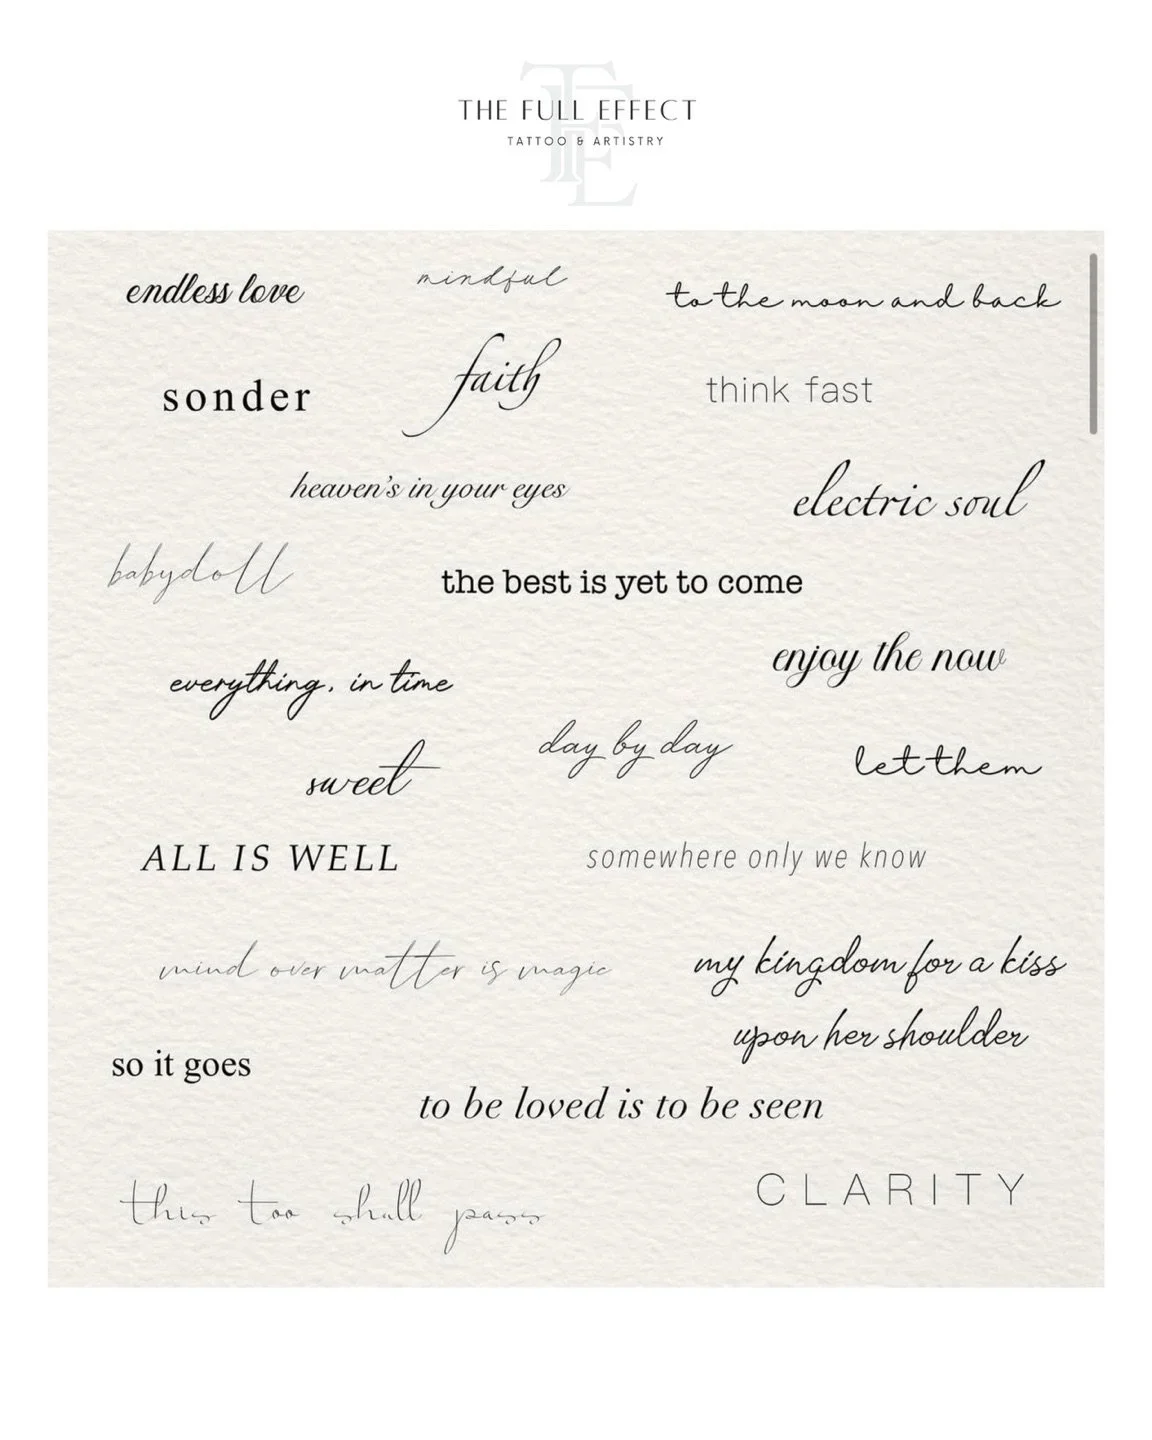 THE FULL EFFECT
TATTOO & ARTISTRY
endless love
mindful
to the moon and back
sonder
faith
think fast
heaven's in your eyes
electric soul
babydoll
the best is yet to come
enjoy the now
everything, in time
day by day
let them
sweet
ALL IS WELL
somewhere only we know
mind over matter is magic
my kingdom for a kiss
upon her shoulder
so it goes
to be loved is to be seen
this too shall pass
CLARITY